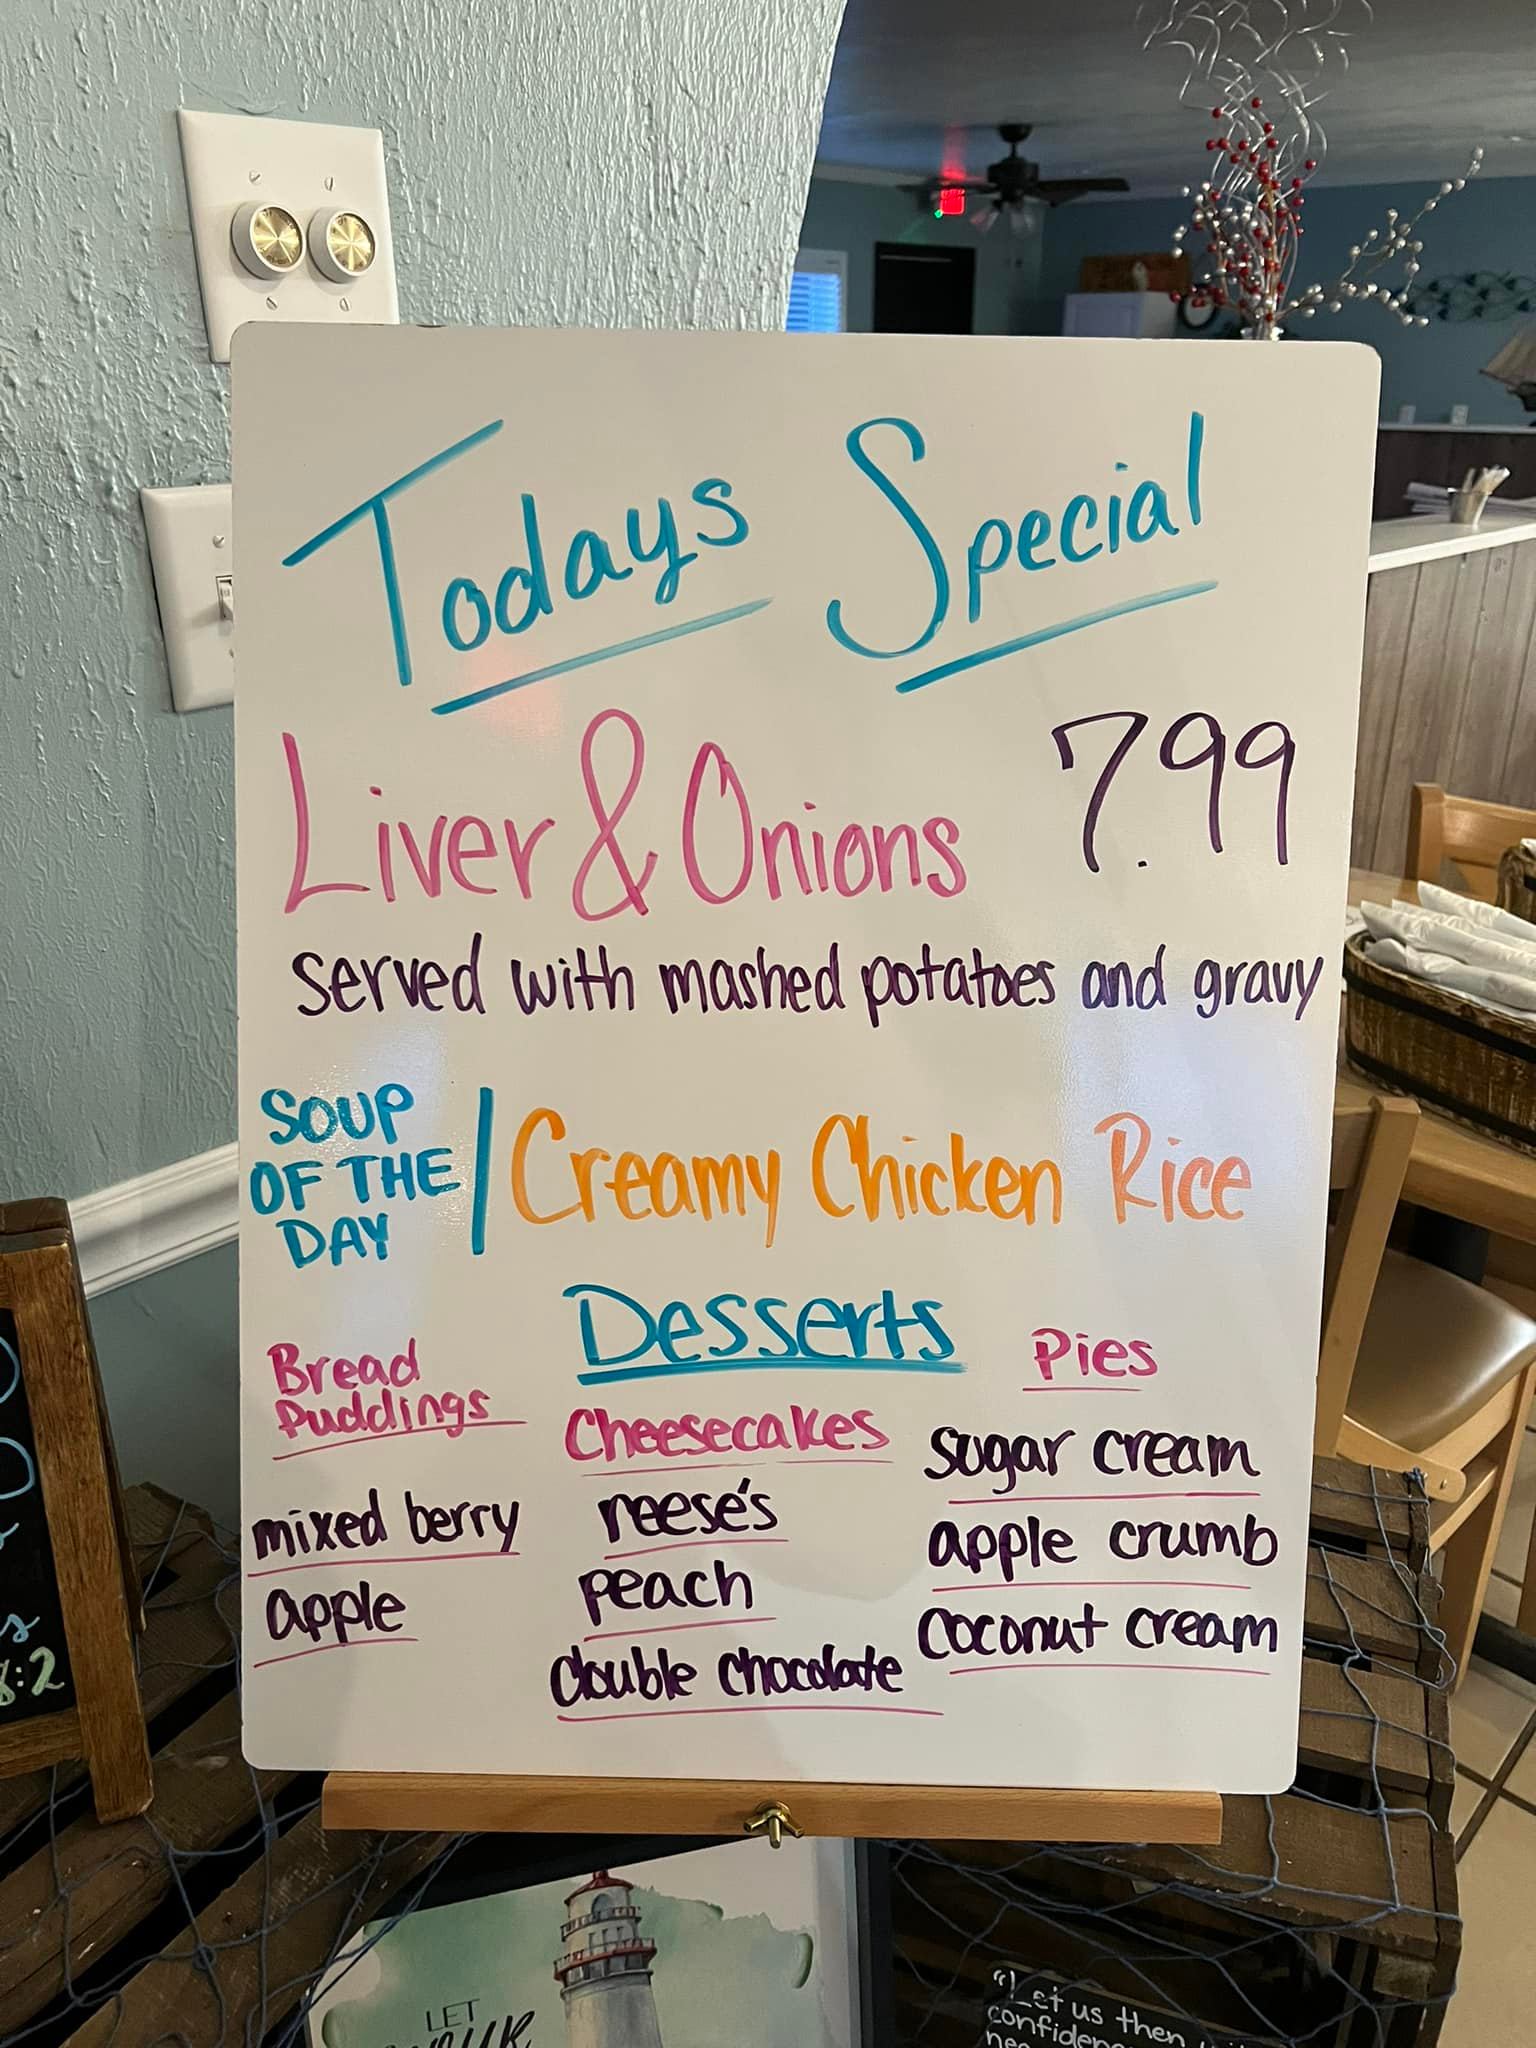 Todays Special
Liver & Onions 7.99
served with mashed potatoes and gravy
SOUP
OF THE
DAY
/ Creamy Chicken Rice
Desserts
Bread
Puddings
mixed berry
apple
Cheesecakes
reese's
peach
double chocolate
Pies
sugar cream
apple crumb
coconut cream
8:2
LET
"Let us then